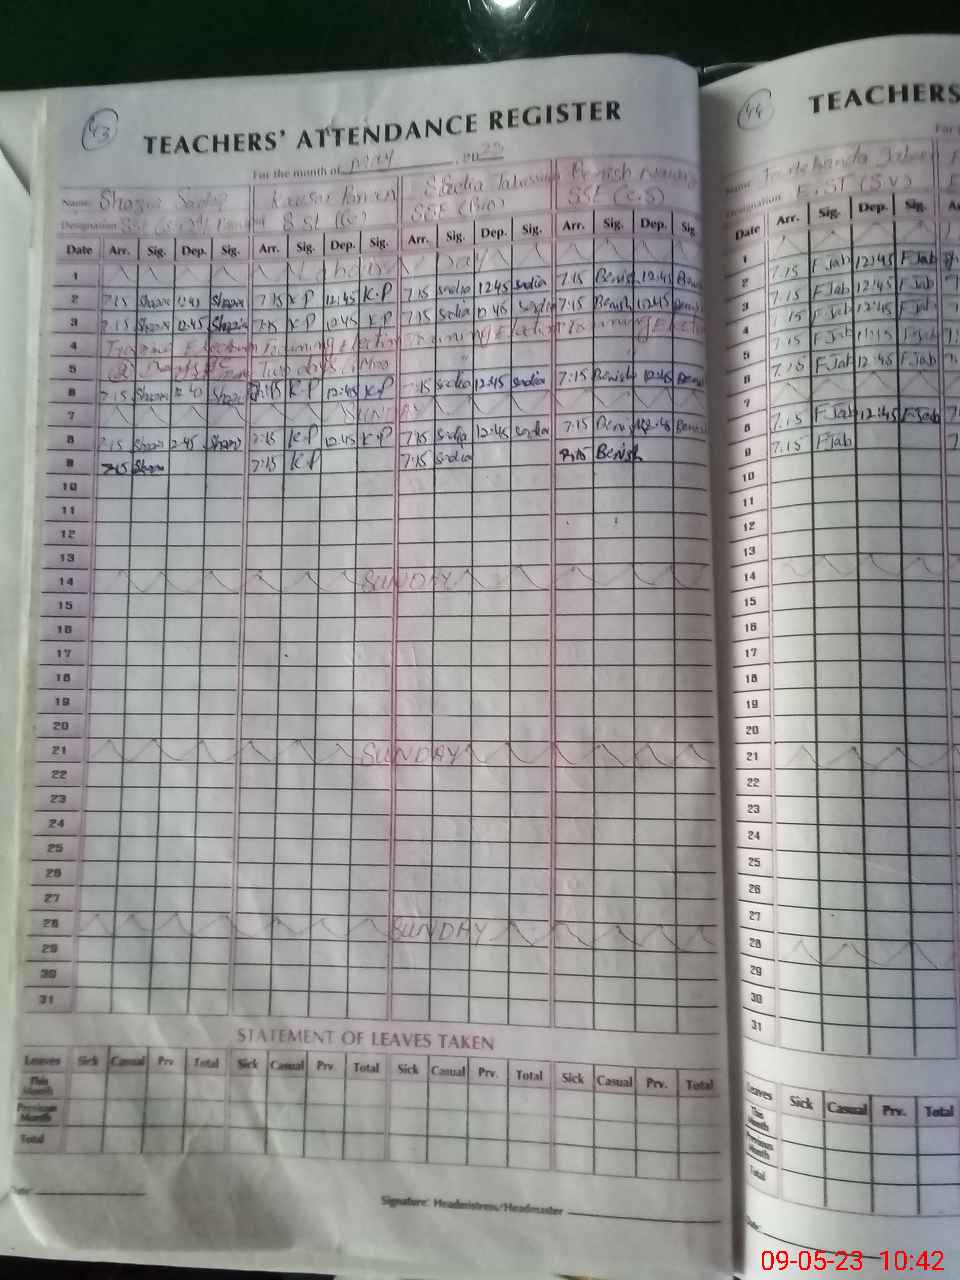 43
TEACHERS' ATTENDANCE REGISTER
For the month of May, 2023
Name: Shazia Kausar Parveen Sadia Tabassum Benish
Designation SST SSE (Bio) SSE (C.S)
Date Arr. Sig. Dep. Sig. Arr. Sig. Dep. Sig. Arr. Sig. Dep. Sig. Arr. Sig. Dep. Sig.
1 Labour Day
2 7:15 Shazia 12:45 Shazia 7:15 K.P 12:45 K.P 7:15 sadia 12:45 sadia 7:15 Benish 12:45 Benish
3 7:15 Shazia 12:45 Shazia 7:15 K.P 12:45 K.P 7:15 sadia 12:45 sadia 7:15 Benish 12:45 Benish
4 Training Election Training Election Training Election Training Election
5
6 7:15 Shazia 12:40 Shazia 7:15 K.P 12:45 K.P 7:15 sadia 12:45 sadia 7:15 Benish 12:45 Benish
7 SUNDAY
8 7:15 Shazia 2:45 Shazia 7:15 K.P 12:45 K.P 7:15 sadia 12:45 sadia 7:15 Benish 12:45 Benish
9 7:15 Shazia 7:15 K.P 7:15 sadia 7:15 Benish
10
11
12
13
14 SUNDAY
15
16
17
18
19
20
21 SUNDAY
22
23
24
25
26
27
28 SUNDAY
29
30
31
STATEMENT OF LEAVES TAKEN
Leaves Sick Casual Prv Total Sick Casual Prv. Total Sick Casual Prv. Total Sick Casual Prv. Total
This Month
Previous Month
Total
Date:
Signature: Headmistress/Headmaster
44
TEACHERS
For
Name
Designation E.ST (S.V)
Date Arr. Sig. Dep. Sig.
1
2 7.15 F Jab 12:45 F Jab
3 7.15 F Jab 12:45 F Jab
4 7.15 F Jab 12:45 F Jab
5 7.15 F Jab
6 7.15 F Jab 12:45 F Jab
7
8 7.15 F Jab 12:45 F Jab
9 7.15 F Jab
10
11
12
13
14
15
16
17
18
19
20
21
22
23
24
25
26
27
28
29
30
31
Leaves Sick Casual Prv. Total
This Month
Previous Month
Total
Date:
09-05-23 10:42